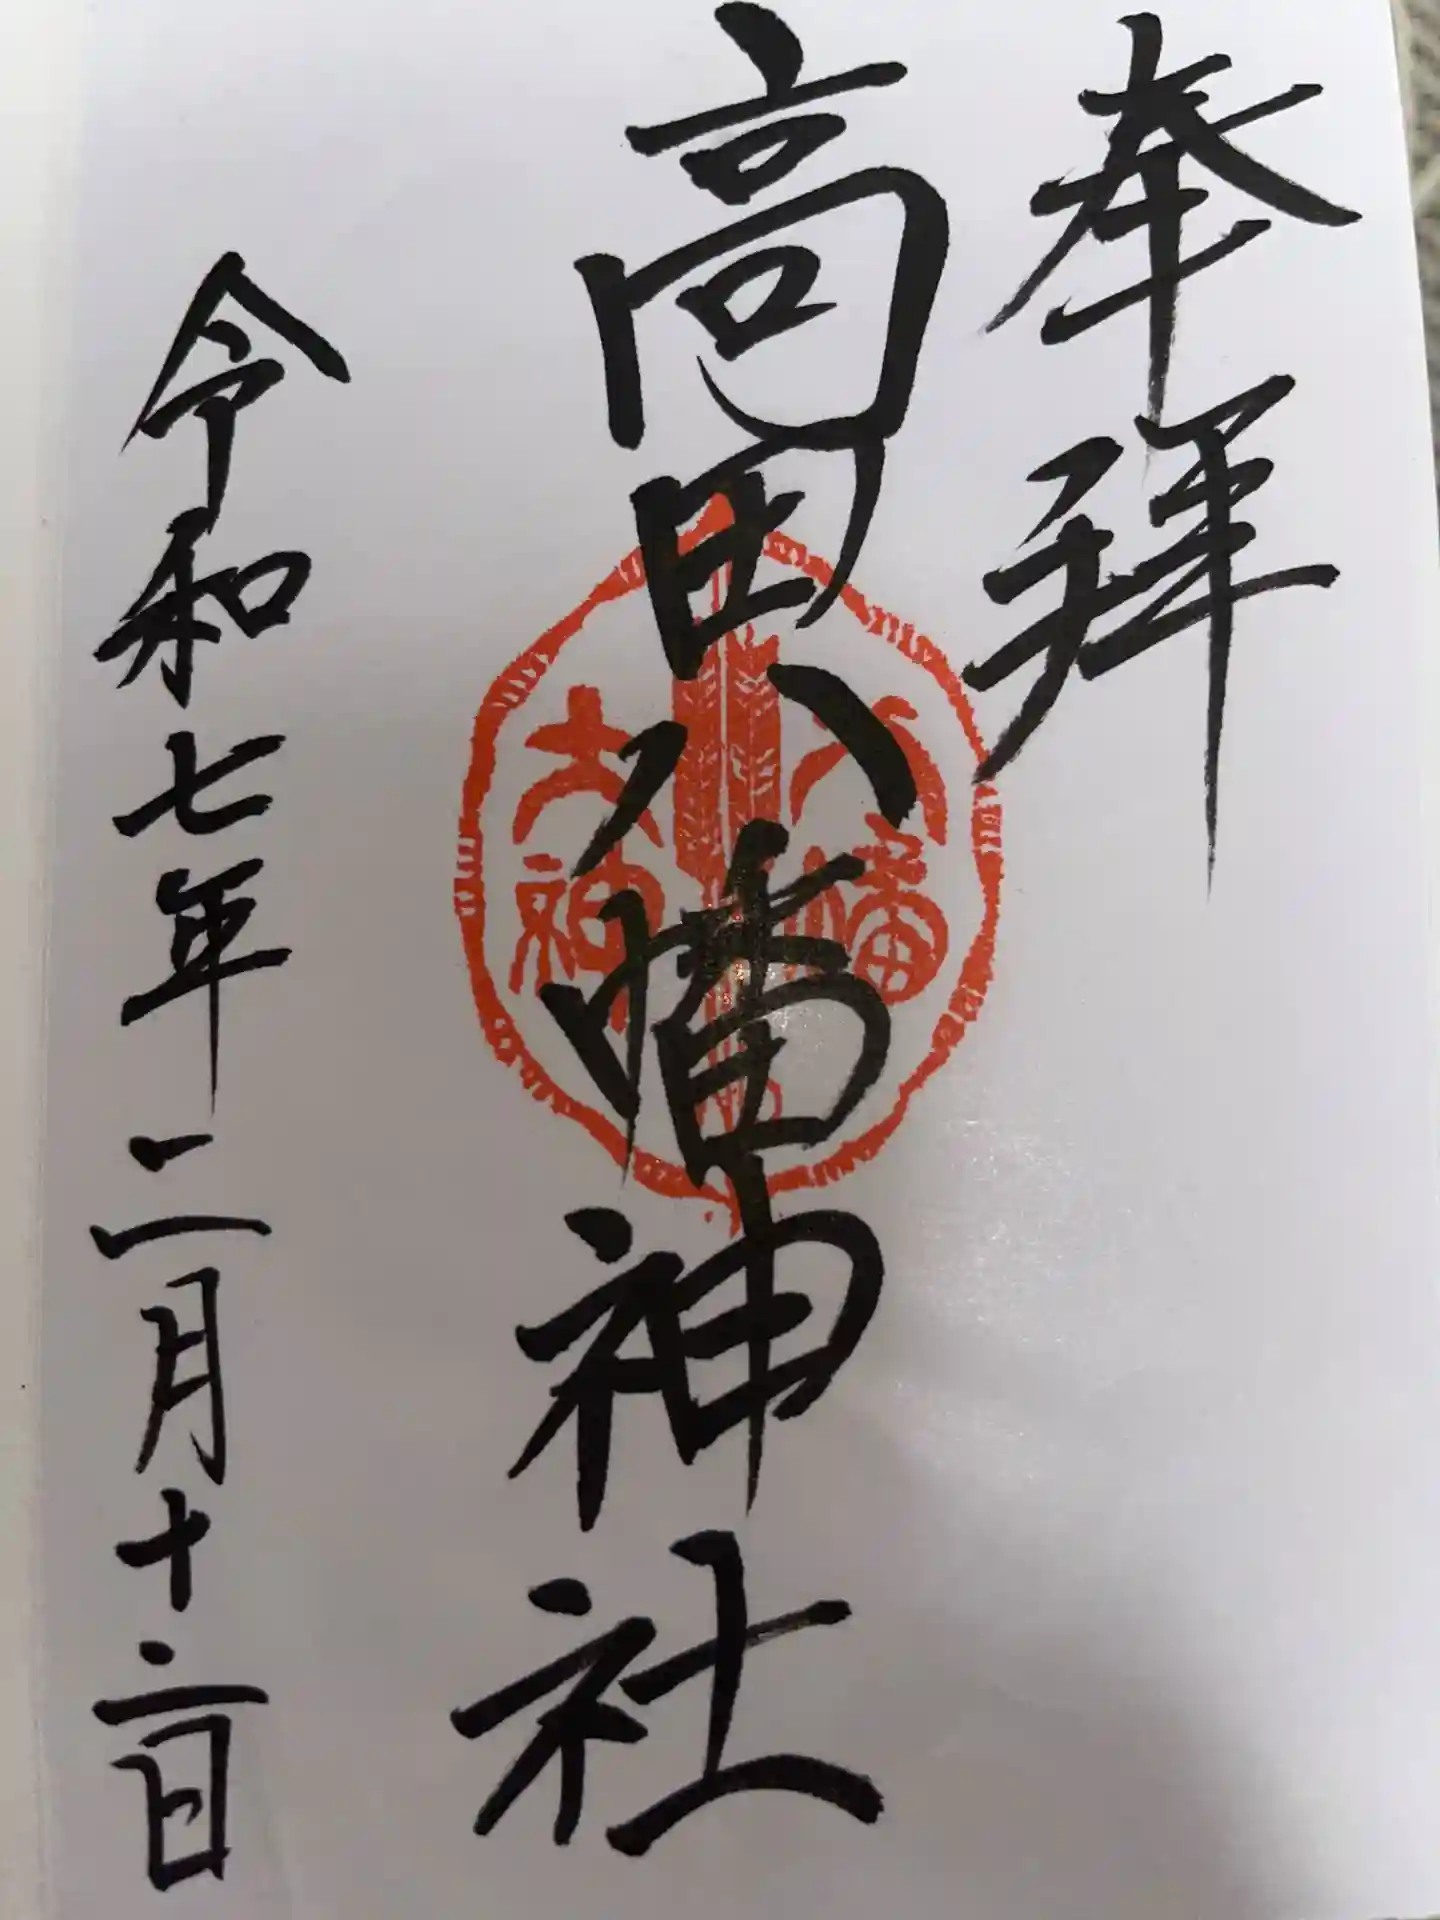 奉拝
高田八幡神社
八幡
大神
令和七年二月十二日